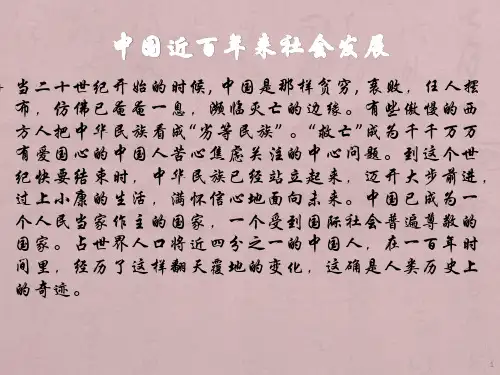 中国近百年来社会发展
当二十世纪开始的时候,中国是那样贫穷,衰败,任人摆
布,仿佛已奄奄一息,濒临灭亡的边缘。有些傲慢的西
方人把中华民族看成“劣等民族”。“救亡”成为千千万万
有爱国心的中国人苦心焦虑关注的中心问题。到这个世
纪快要结束时,中华民族已经站立起来,迈开大步前进,
过上小康的生活,满怀信心地面向未来。中国已成为一
个人民当家作主的国家,一个受到国际社会普遍尊敬的
国家。占世界人口将近四分之一的中国人,在一百年时
间里,经历了这样翻天覆地的变化,这确是人类历史上
的奇迹。
1